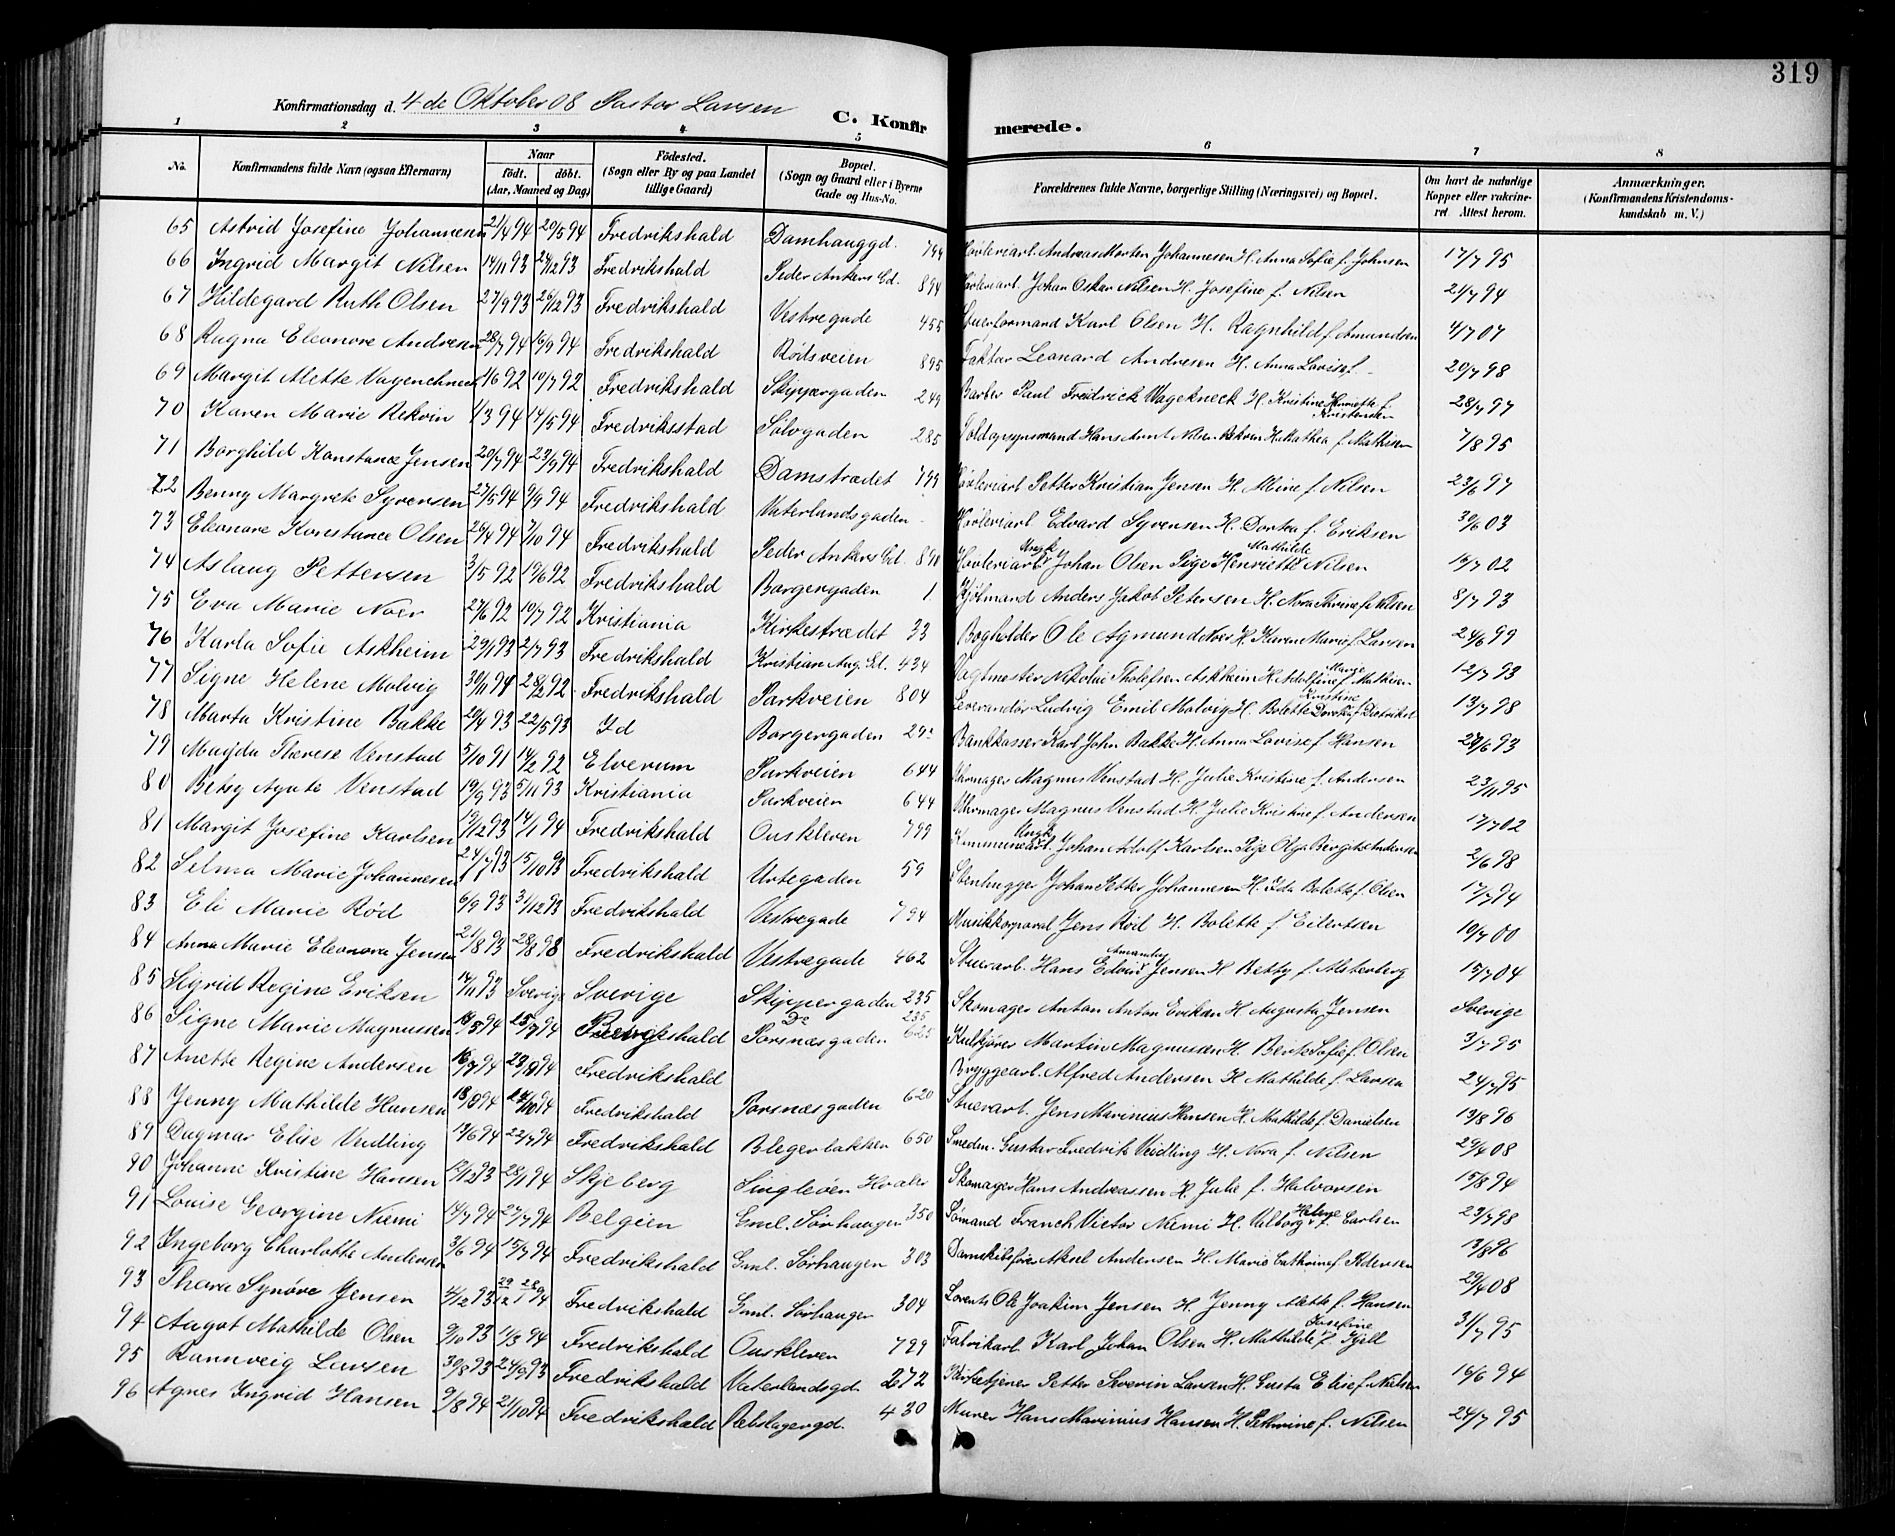 319
Konfirmationsdag d. 4 de Oktober 08 Pastor Larsen C. Konfirmerede.
1 2 3 4 5 6 7 8
No. Konfirmandens fulde Navn (ogsaa Efternavn) Naar födt. döbt. (Aar, Maaned og Dag) Födested. (Sogn eller By og paa Landet tillige Gaard) Bopæl. (Sogn og Gaard eller i Byerne Gade og Hus-No. Forældrenes fulde Navne, borgerlige Stilling (Næringsvei) og Bopæl. Om havt de naturlige Kopper eller vakcineret Attest herom. Anmærkninger. (Konfirmandens Kristendomskundskab m. V.)
65 Astrid Josefine Johannesen 21/4 94 20/5 94 Fredrikshald Damhauggd. 794 Høvleriarb. Andreas Morten Johannesen H. Anna Sofie f. Johnsen 17/7 95
66 Ingrid Margit Nilsen 14/11 93 24/12 93 Fredrikshald Peder Ankers Gd. 894 Høvleriarb. Johan Oskar Nilsen H. Josefine f. Nilsen 21/7 94
67 Hildegard Ruth Olsen 27/9 93 26/12 93 Fredrikshald Vestregade 455 Stuerformand Karl Olsen H. Ragnhild f. Amundsen 4/7 07
68 Ragna Eleonore Andresen 28/7 94 16/9 94 Fredrikshald Rødsveien 895 Faktor Leonard Andresen H. Anna Lovise f. - 20/7 98
69 Margit Alette Vagenekneck 4/6 92 10/7 92 Fredrikshald Skippergaden 249 Barber Paul Fredrick Wagekneck H. Kristine Henriette f. Kristensen 28/7 97
70 Karen Marie Rekvin 1/3 94 14/5 94 Fredriksstad Sølvgaden 285 Toldopsynsmand Hans Arnt Nilsen Rekvin H. Mathea f. Mathisen 7/8 95
71 Borghild Konstance Jensen 20/7 94 23/9 94 Fredrikshald Damstrædet 799 Høvleriarb Petter Kristian Jensen H. Mine f. Nilsen 23/6 97
72 Benny Margrete Syvensen 27/5 94 9/9 94 Fredrikshald Vaterlandsgaden - Høvleriarb Edvard Syvensen H. Dortea f. Eriksen 30/6 03
73 Eleonore Konstance Olsen 26/4 94 7/10 94 Fredrikshald Peder Ankers Gd. 898 Høvleriarb. Ungk. Johan Olsen Pige Henriette Mathilde Nilsen 14/7 02
74 Aslaug Pettersen 3/5 92 19/6 92 Fredrikshald Borgergaden 1 Sjømand Anders Jakob Petersen H. Nora Thrine f. Nilsen 8/7 93
75 Eva Marie Noer 27/6 92 10/7 92 Kristiania Kirkestrædet 33 Bogholder Ole Agmund Noer H. Karen Marie f. Larsen 24/6 99
76 Karla Sofie Askheim 29/1 93 2/7 93 Fredrikshald Kristian Aug. Gd. 434 Vagtmester Nikolai Tholefsen Askheim H. Adolfine Marie f. Mathisen 12/7 93
77 Signe Helene Molvig 30/11 91 28/2 92 Fredrikshald Parkveien 804 Leverandør Ludvig Emil Molvig H. Bolette Kristine Dorothea f. Didriksen 13/7 98
78 Marta Kristine Bakke 20/4 93 22/5 93 Id Borgergaden Bankkasser Karl John Bakke H. Anna Lovise f. Hansen 28/6 93
79 Magda Therese Venstad 5/10 91 14/2 92 Elverum Parkveien 644 Uhrmager Magnus Venstad H. Julie Kristine f. Andersen 23/11 95
80 Betsy Agate Venstad 19/9 93 5/11 93 Kristiania Parkveien 644 Uhrmager Magnus Venstad H. Julie Kristine f. Andersen 17/7 02
81 Margit Josefine Karlsen 19/12 93 14/1 94 Fredrikshald Ouskleven 799 Kommunearb. Ungk. Johan Adolf Karlsen Pige Olga Bergitte Andersen 2/6 98
82 Selma Marie Johannesen 24/7 93 15/10 93 Fredrikshald Urtegaden 59 Stenhugger Johan Petter Johannesen H. Ida Bolette f. Olsen 17/7 94
83 Eli Marie Rød 6/9 93 31/12 93 Fredrikshald Vestregade 794 Musikkorporal Jens Rød H. Bolette f. Eilertsen 10/7 00
84 Anna Marie Eleonora Jensen 21/8 93 28/8 98 Fredrikshald Vestregade 462 Stuerarb. Hans Edvin Jensen H. Betty f. Alsterberg 15/7 04
85 Sigrid Regine Eriksen 14/11 93 Sverige Sverige Skippergaden 235 Skomager Anton Anton Eriksen H. Augusta Jensen Sverige
86 Signe Marie Magnussen 14/5 94 15/7 94 Fredrikshald Porsnæsgaden 625 Kulkjører Martin Magnusen H. Berte Sofie f. Olsen 3/7 95
87 Anette Regine Andersen 16/7 94 23/9 94 Fredrikshald Bryggearb. Alfred Andersen H. Mathilde f. Larsen 24/7 95
88 Jenny Mathilde Hansen 13/8 94 14/10 94 Fredrikshald Porsnæsgaden 620 Stuerarb. Jens Marinius Hansen H. Mathilde f. Danielsen 13/8 96
89 Dagmar Elise Veidling 17/6 94 22/7 94 Fredrikshald Blegerbakken 650 Smedem. Gustav Fredrik Veidling H. Nora f. Nilsen 29/4 08
90 Johanne Kristine Hansen 17/12 93 28/1 94 Skjeberg Singleøen Hvaler Skomager Hans Andreassen H. Julie f. Halvorsen 15/8 94
91 Louise Georgine Niemi 14/7 94 27/7 94 Belgien Gml. Sørhaugen 350 Sømand Franch Victor Niemi H. Valborg Helene f. Carlsen 23/7 98
92 Ingeborg Charlotte Andersen 3/6 94 15/7 94 Fredrikshald Gml. Sørhaugen 303 Damskibsfører Aksel Andersen H. Marie Cathrine f. Pedersen 13/8 96
93 Thora Synøve Jensen 4/12 93 29/12 28/1 94 Fredrikshald Gml. Sørhaugen 304 Lorents Ole Joakim Jensen H. Jenny Alette f. Hansen 29/4 08
94 Aagot Mathilde Olsen 9/10 93 11/3 94 Fredrikshald Ouskleven 799 Fabrikarb. Karl Johan Olsen H. Mathilde Josefine f. Kjell 31/7 95
95 Rannveig Larsen 30/8 93 24/9 93 Fredrikshald Vaterlandsgd. 272 Petter Severin Larsen H. Gusta Elise f. Nielsen 16/6 94
96 Agnes Ingrid Hansen 9/8 94 21/10 94 Fredrikshald Rebslagergd. 430 Murer Hans Marinius Hansen H. Pethrine f. Nilsen 24/7 95